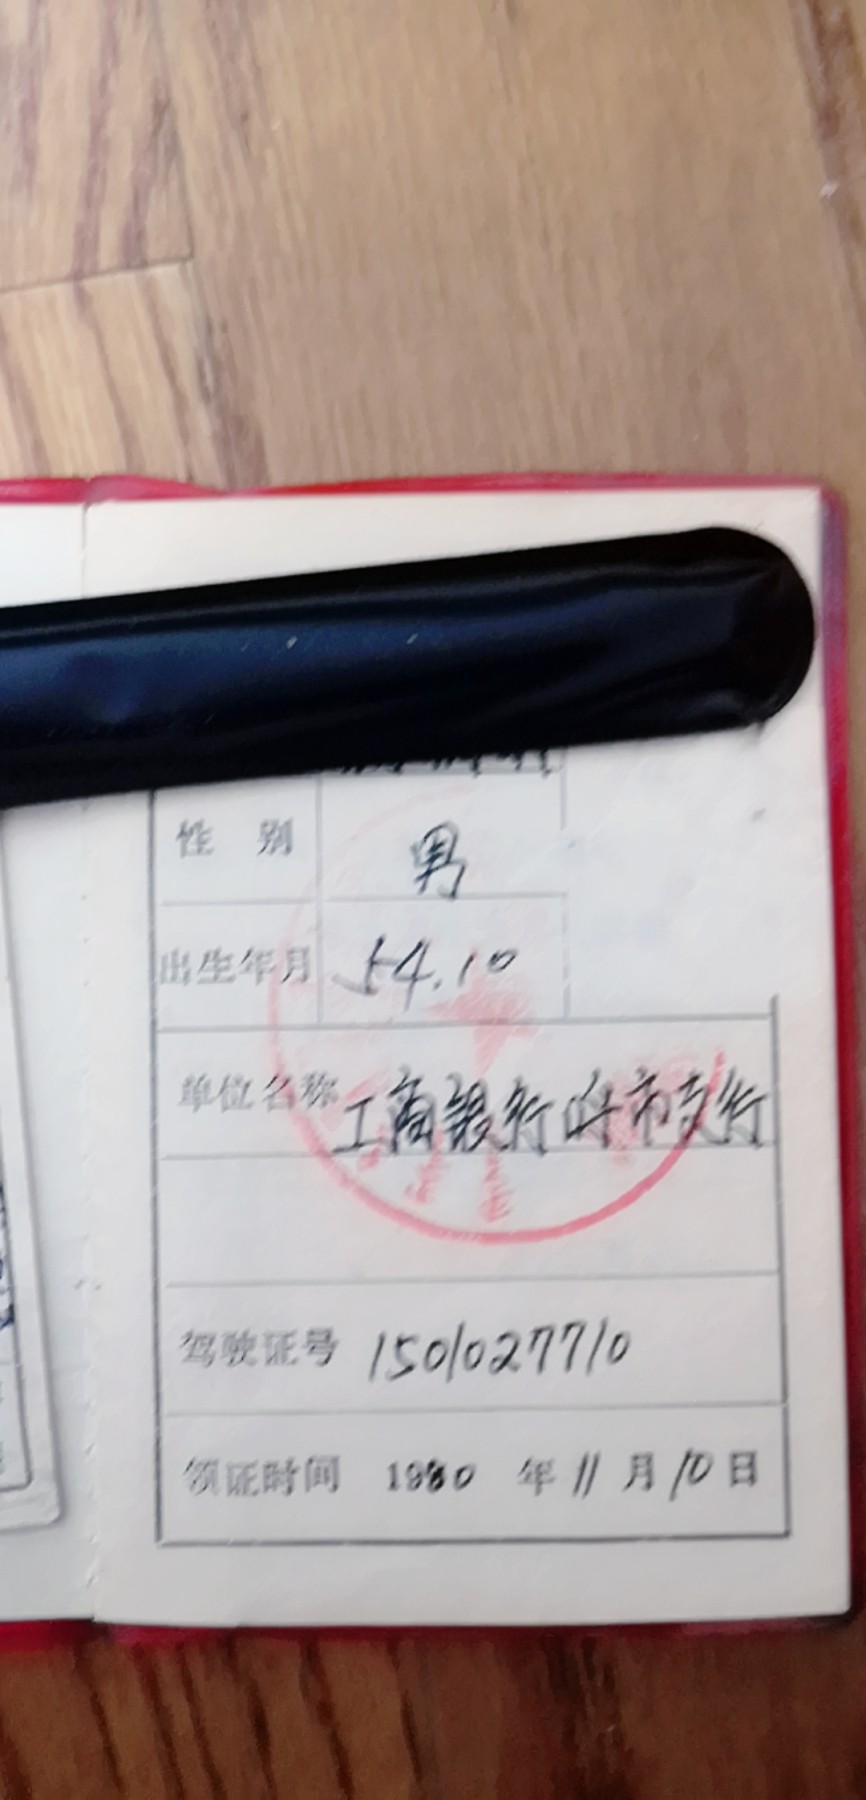 性 别 男
出生年月 54.10
单位名称 工商银行呼市支行
驾驶证号 1501027710
领证时间 1980 年 11 月 10 日